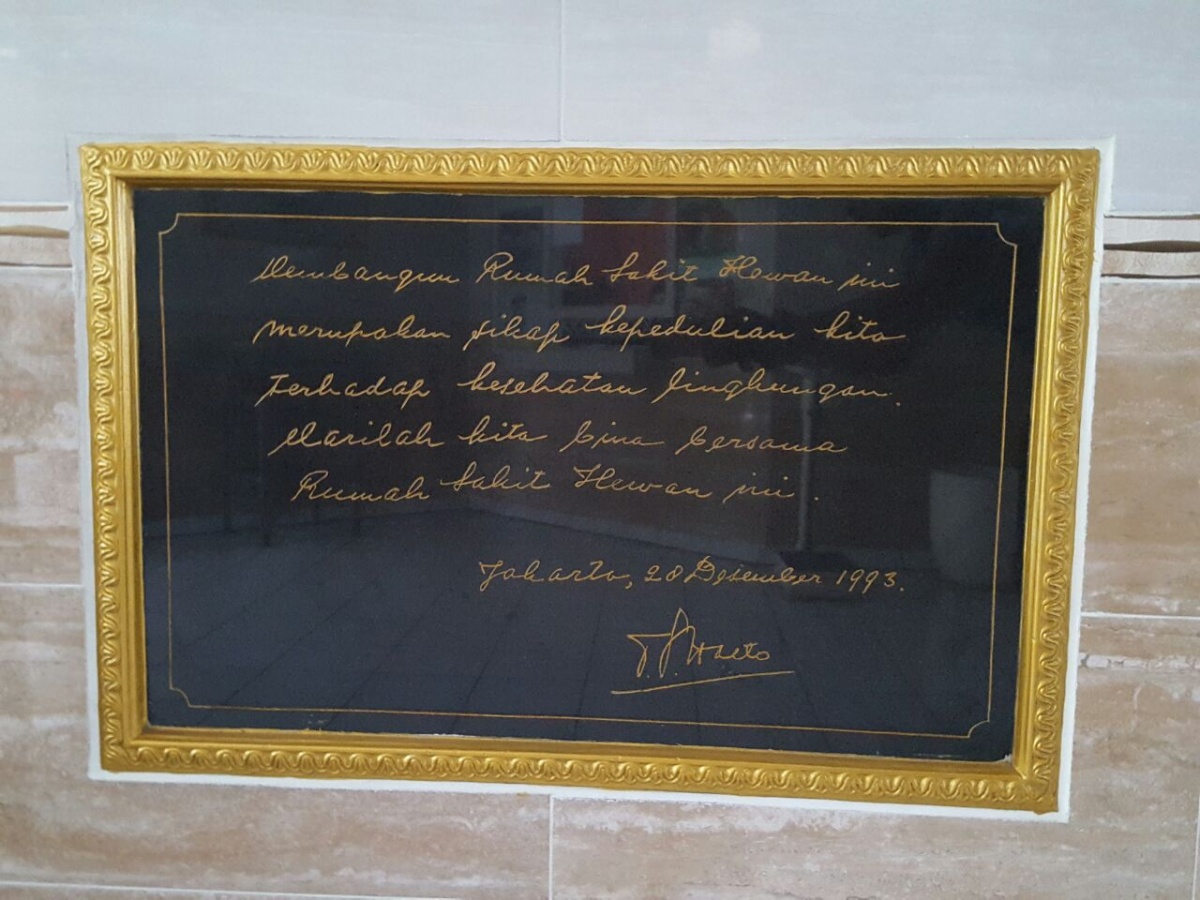 Membangun Rumah Sakit Hewan ini
merupakan sikap kepedulian kita
terhadap kesehatan lingkungan.
Marilah kita bina bersama
Rumah Sakit Hewan ini.
Jakarta, 28 Desember 1993.